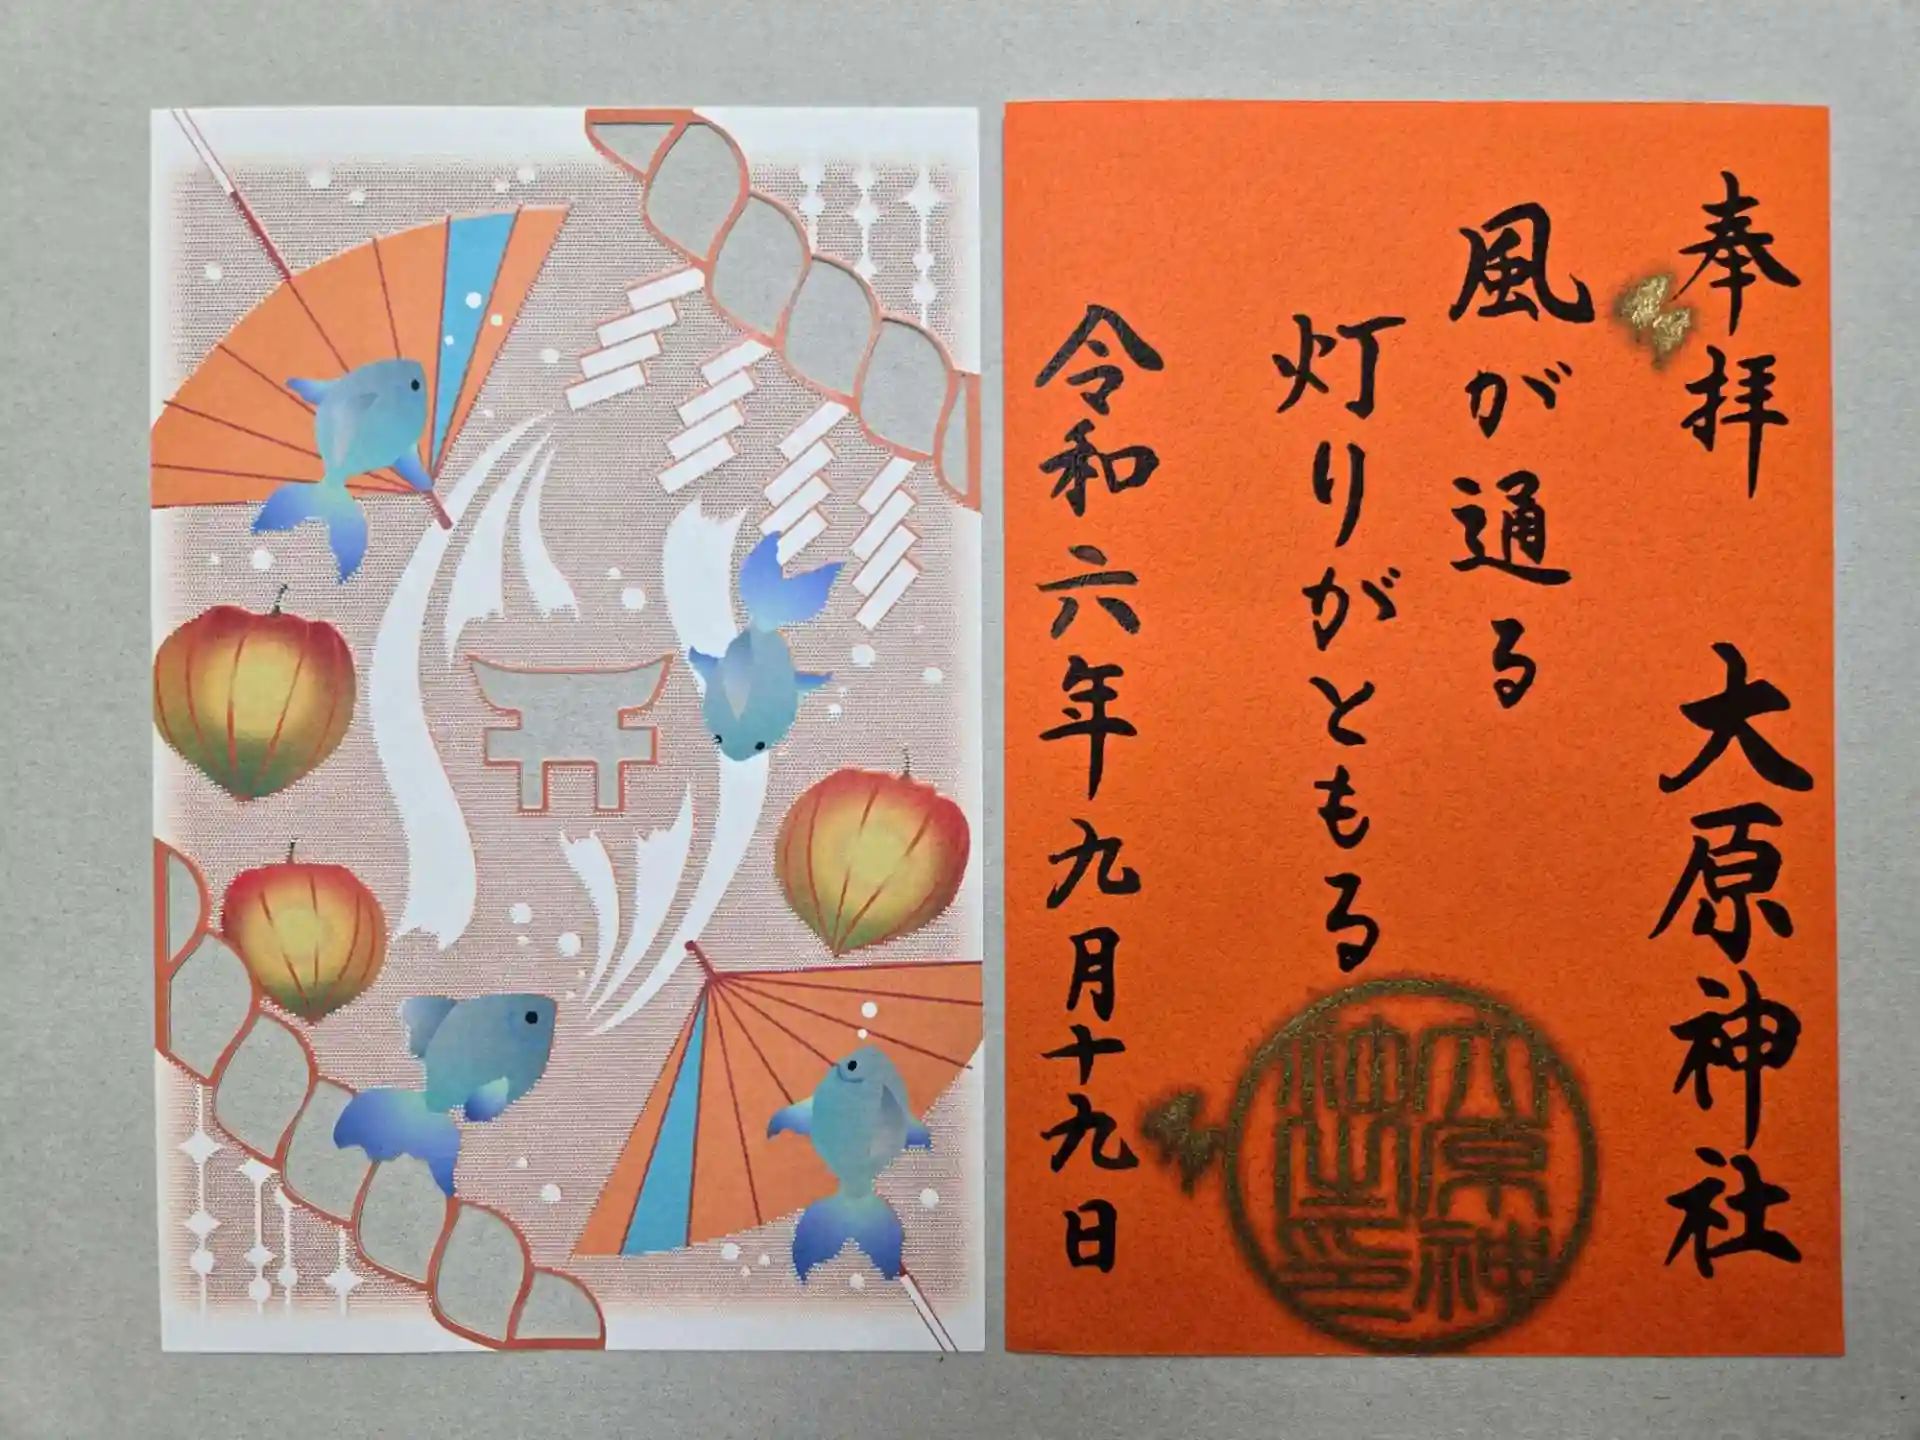 奉拝 大原神社
風が通る
灯りがともる
令和六年九月十九日
大原神
社之印